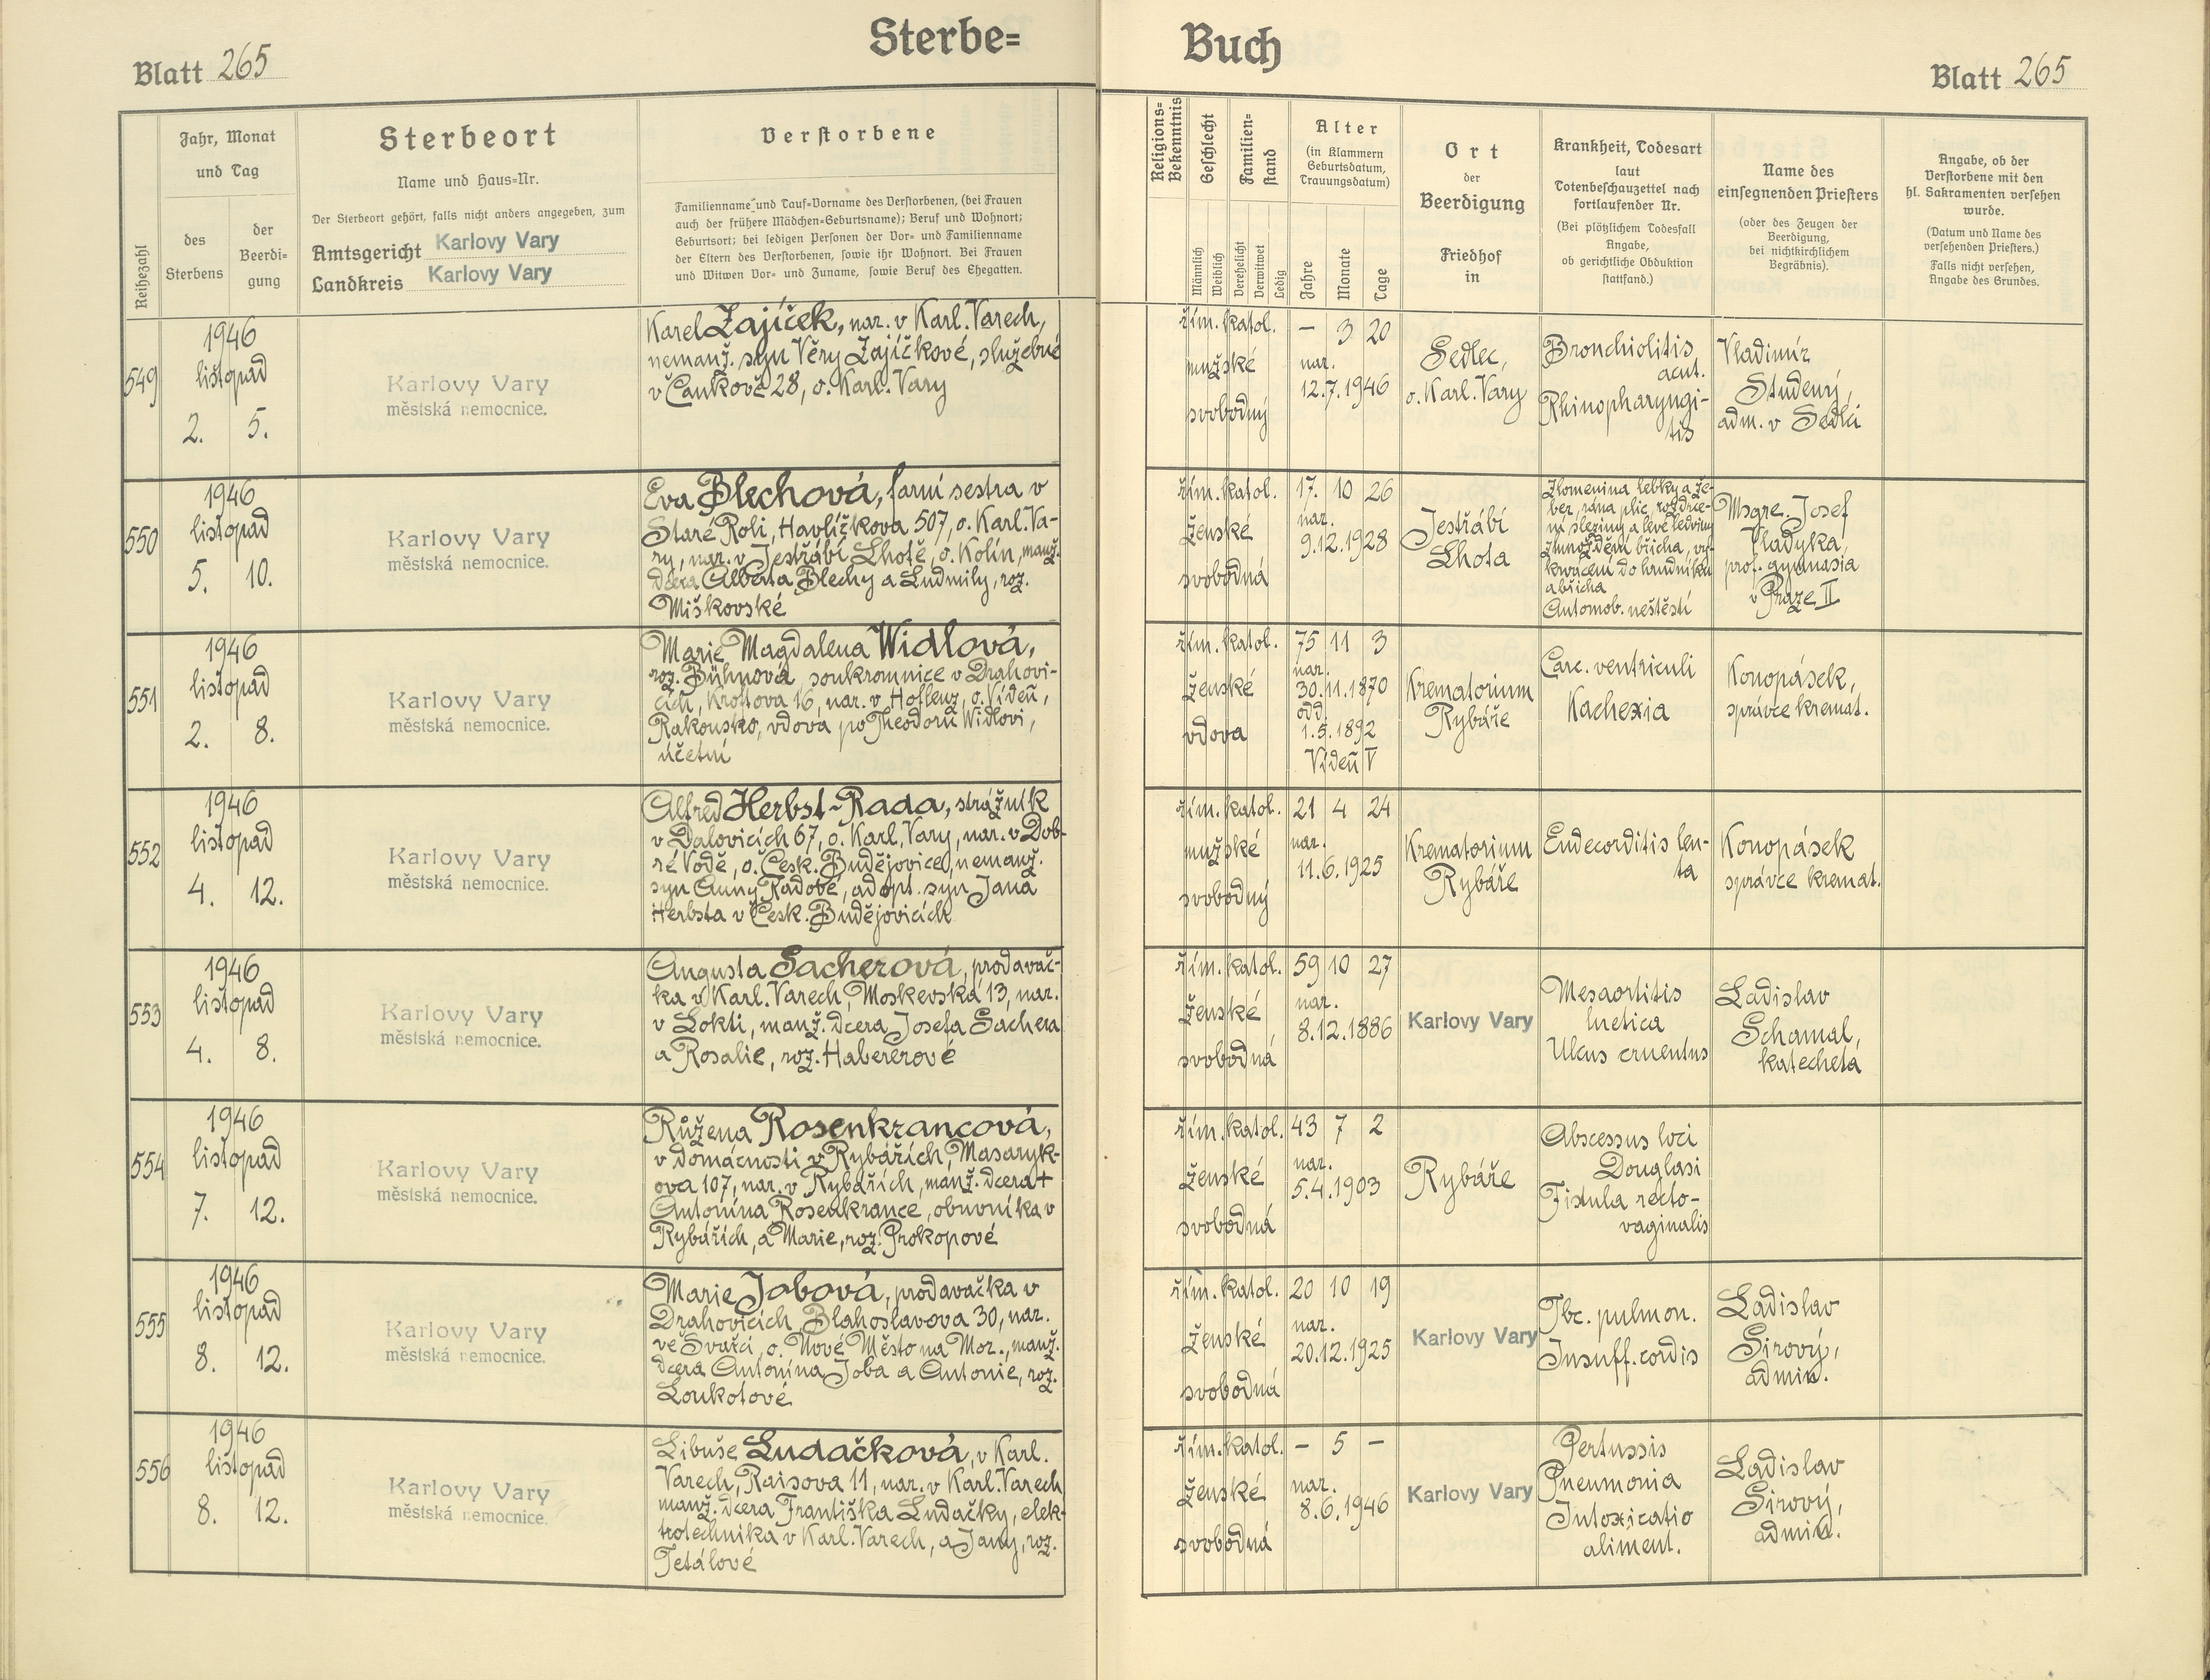 Sterbe=
Buch
Blatt 265
Blatt 265
Reihezahl
Jahr, Monat
und Tag
des
Sterbens
der
Beerdi=
gung
Sterbeort
Name und Haus=Nr.
Der Sterbeort gehört, falls nicht anders angegeben, zum
Amtsgericht Karlovy Vary
Landkreis Karlovy Vary
Verstorbene
Familienname und Tauf=Vorname des Verstorbenen, (bei Frauen
auch der frühere Mädchen=Geburtsname); Beruf und Wohnort;
Geburtsort; bei ledigen Personen der Vor= und Familienname
der Eltern des Verstorbenen, sowie ihr Wohnort. Bei Frauen
und Witwen Vor= und Zuname, sowie Beruf des Ehegatten.
Religions=
Bekenntnis
Geschlecht
Männlich
Weiblich
Familien=
stand
Verehelicht
Verwitwet
Ledig
Alter
(in Klammern
Geburtsdatum,
Trauungsdatum)
Jahre
Monate
Tage
Ort
der
Beerdigung
Friedhof
in
Krankheit, Todesart
laut
Totenbeschauzettel nach
fortlaufender Nr.
(Bei plötzlichem Todesfall
Angabe,
ob gerichtliche Obduktion
stattfand.)
Name des
einsegnenden Priesters
(oder des Zeugen der
Beerdigung,
bei nichtkirchlichem
Begräbnis).
Angabe, ob der
Verstorbene mit den
hl. Sakramenten versehen
wurde.
(Datum und Name des
versehenden Priesters.)
Falls nicht versehen,
Angabe des Grundes.
549
1946
listopad
2. 5.
Karlovy Vary
městská nemocnice.
Karel Zajíček, nar. v Karl. Varech,
nemanž. syn Věry Zajíčkové, služebné
v Čankově 28, o. Karl. Vary
řím. katol.
mužské
svobodný
– 3 20
nar.
12.7.1946
Sedlec,
o. Karl. Vary
Bronchiolitis
acut.
Rhinopharyngi-
tis
Vladimír
Studený,
adm. v Sedlci
550
1946
listopad
5. 10.
Karlovy Vary
městská nemocnice.
Eva Blechová, farní sestra v
Staré Roli, Havlíčkova 507, o. Karl. Va-
ry, nar. v Jestřábí Lhotě, o. Kolín, manž.
dcera Alberta Blechy a Ludmily, roz.
Miškovské
řím. katol.
ženské
svobodná
17. 10 26
nar.
9.12.1928
Jestřábí
Lhota
Zlomenina lebky a že-
ber, rána plic, rozdrce-
ní sleziny a levé ledviny
zhmoždění břicha, vy-
krvácení do hrudníku
a břicha
Automob. neštěstí
Msgre. Josef
Vladyka,
prof. gymnasia
v Praze II
551
1946
listopad
2. 8.
Karlovy Vary
městská nemocnice.
Marie Magdalena Widlová,
roz. Bühnová, soukromnice v Drahovi-
cích, Kroftova 16, nar. v Hoflenz, o. Vídeň,
Rakousko, vdova po Theodoru Widlovi,
účetní
řím. katol.
ženské
vdova
75 11 3
nar.
30.11.1870
odd.
1.5.1892
Vídeň V
Krematorium
Rybáře
Carc. ventriculi
Kachexia
Konopásek,
správce kremat.
552
1946
listopad
4. 12.
Karlovy Vary
městská nemocnice.
Alfred Herbst-Rada, strážník
v Dalovicích 67, o. Karl. Vary, nar. v Dob-
ré Vodě, o. Česk. Budějovice, nemanž.
syn Anny Radové, adopt. syn Jana
Herbsta v Česk. Budějovicích
řím. katol.
mužské
svobodný
21 4 24
nar.
11.6.1925
Krematorium
Rybáře
Endecorditis len-
ta
Konopásek
správce kremat.
553
1946
listopad
4. 8.
Karlovy Vary
městská nemocnice.
Augusta Sacherová, prodavač-
ka v Karl. Varech, Moskevská 13, nar.
v Lokti, manž. dcera Josefa Sachera
a Rosalie, roz. Habererové
řím. katol.
ženské
svobodná
59 10 27
nar.
8.12.1886
Karlovy Vary
Mesaortitis
luetica
Ulcus cruentus
Ladislav
Schamal,
katecheta
554
1946
listopad
7. 12.
Karlovy Vary
městská nemocnice.
Růžena Rosenkrancová,
v domácnosti v Rybářích, Masaryk-
ova 107, nar. v Rybářích, manž. dcera +
Antonína Rosenkrance, obuvníka v
Rybářích, a Marie, roz. Prokopové
řím. katol.
ženské
svobodná
43 7 2
nar.
5.4.1903
Rybáře
Abscessus loci
Douglasi
Fistula recto-
vaginalis
555
1946
listopad
8. 12.
Karlovy Vary
městská nemocnice.
Marie Jobová, prodavačka v
Drahovicích, Blahoslavova 30, nar.
ve Svařci, o. Nové Město na Mor., manž.
dcera Antonína Joba a Antonie, roz.
Loukotové
řím. katol.
ženské
svobodná
20 10 19
nar.
20.12.1925
Karlovy Vary
Tbc. pulmon.
Insuff. cordis
Ladislav
Sirový,
admin.
556
1946
listopad
8. 12.
Karlovy Vary
městská nemocnice.
Libuše Ludačková, v Karl.
Varech, Raisova 11, nar. v Karl. Varech
manž. dcera Františka Ludačky, elek-
trotechnika v Karl. Varech, a Jany, roz.
Tetálové
řím. katol.
ženské
svobodná
– 5 –
nar.
8.6.1946
Karlovy Vary
Pertussis
Pneumonia
Intoxicatio
aliment.
Ladislav
Sirový,
admin.